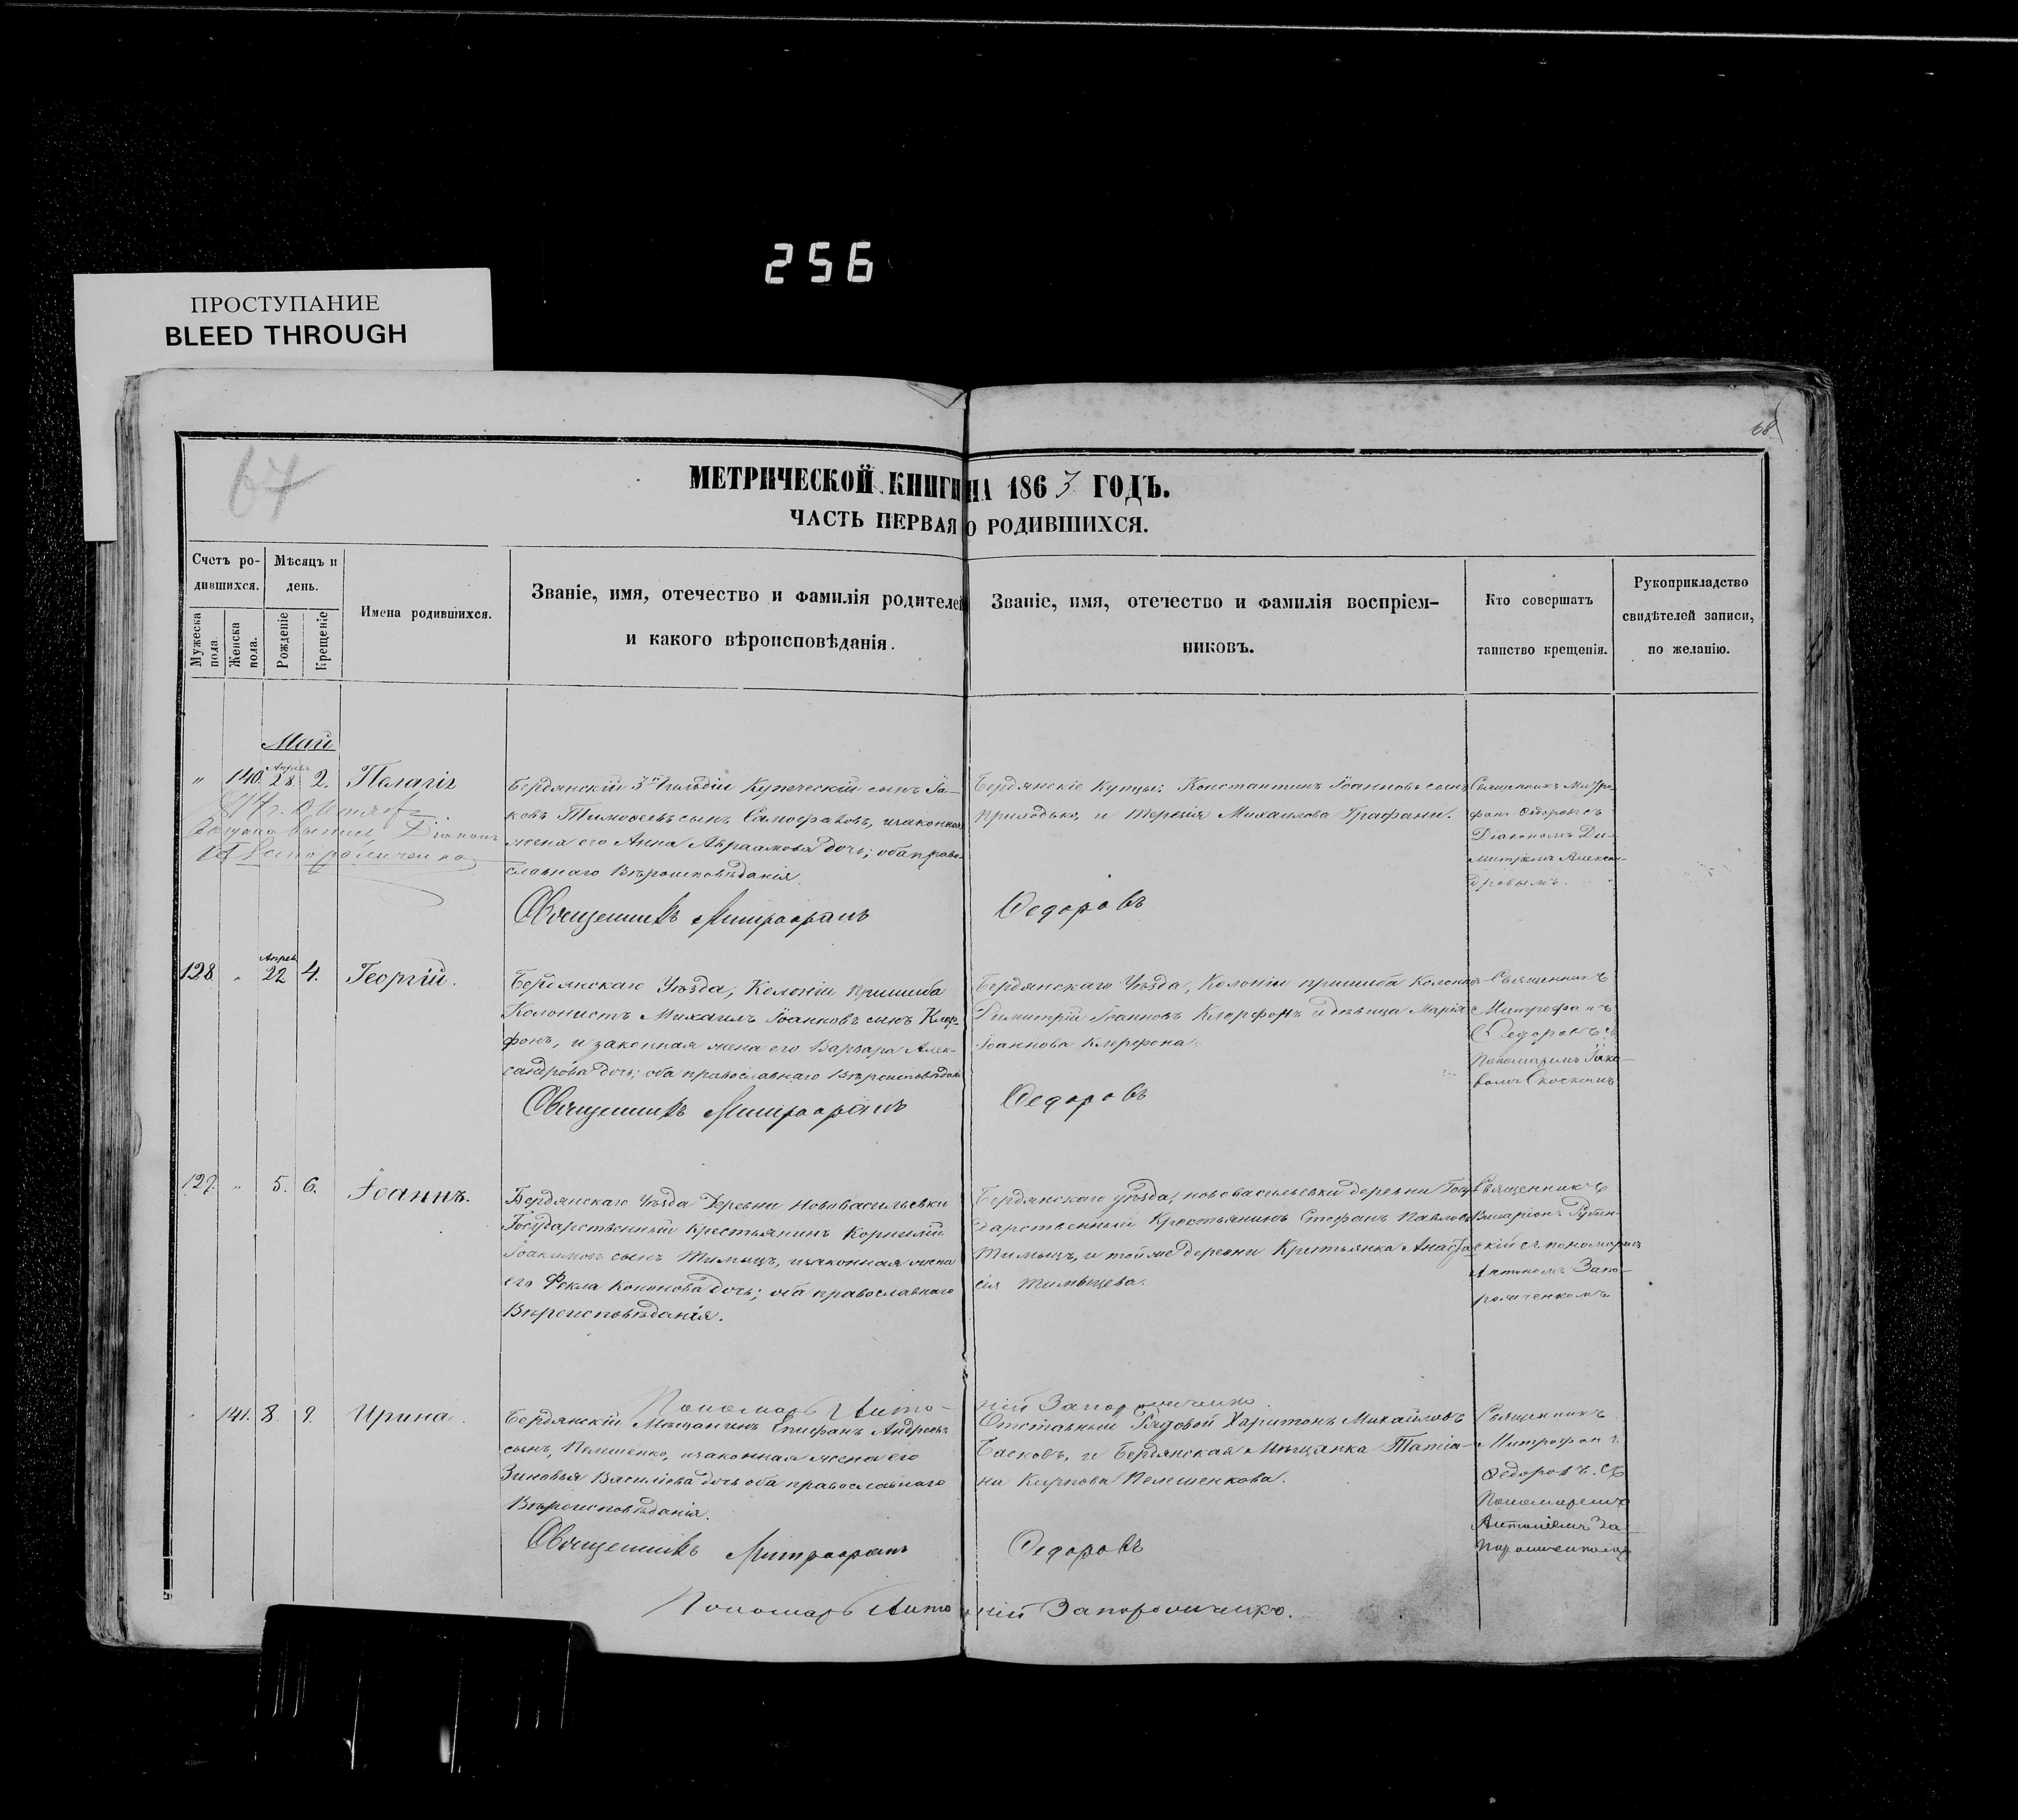 256
ПРОСТУПАНИЕ
BLEED THROUGH
68
67
МЕТРИЧЕСКОЙ КНИГИ НА 1863 ГОДЪ.
ЧАСТЬ ПЕРВАЯ О РОДИВШИХСЯ.
Счетъ ро-
дившихся.
Мужеска
пола
Женска
пола.
Мѣсяцъ и
день.
Рожденіе
Крещеніе
Имена родившихся.
Званіе, имя, отечество и фамилія родителей
и какого вѣроисповѣданія.
Званіе, имя, отечество и фамилія воспріем-
никовъ.
Кто совершатъ
таинство крещенія.
Рукоприкладство
свидѣтелей записи,
по желанію.
Май
Апрель
" 140. 28. 2. Пелагія
Діаконъ
Бердянскій 3й Гильдіи Купеческій сынъ Іа-
ковъ Тимофеевъ сынъ Самофаловъ, изаконная
жена его Анна Авраамова дочь; оба право-
славнаго Вѣроисповѣданія
Бердянскіе Купцы: Константинъ Іоанновъ сынъ
Приходько, и Терезія Михаилова Графани.
Священникъ Митро-
фанъ Федоровъ съ
Діакономъ Ди-
митріемъ Алексан-
дровымъ.
Священникъ Митрофанъ Федоровъ
Апрель
128 " 22 4. Георгій.
Бердянскаго Уѣзда, Колоніи Пришиба
Колонистъ Михаилъ Іоанновъ сынъ Клер-
фонъ, и законная жена его Варвара Алек-
сандрова дочь; оба православнаго Вѣроисповѣдан
Бердянскаго Уѣзда, Колоніи пришиба Колонис
Димитрій Іоанновъ Клерфонъ и дѣвица Марія
Іоаннова Клерфона.
Священникъ
Митрофанъ
Федоровъ съ
Пономаремъ Іако-
вомъ
Священникъ Митрофанъ Федоровъ
129. " 5. 6. Іоаннъ.
Бердянскаго Уѣзда Деревни Нововасильевки
Государственный Крестьянинъ Корнилій
Іоакимовъ сынъ Тимыцъ, изаконная жена
его Фекла Кононова дочь; оба православнаго
Вѣроисповѣданія.
Бердянскаго уѣзда, нововасильевки деревни Госу-
дарственный Крестьянинъ Стефанъ Павловъ
Тимыцъ, и тойже деревни Крестьянка Анаста-
сія Тимыцева.
Священникъ
Виларіонъ
скій съ пономаремъ
Антономъ Запо-
роженкомъ
Пономарь Антоній Запорожченко.
" 141. 8. 9. Ирина.
Бердянскій Мѣщанинъ Епифанъ Андреевъ
сынъ, Пелешенко, изаконная жена его
Зиновья Василіева дочь оба православнаго
Вѣроисповѣданія.
Отставный Рядовой Харитонъ Михаиловъ
Басковъ, и Бердянская Мѣщанка Татіа-
на Карпова Пелешенкова.
Священникъ
Митрофанъ
Федоровъ съ
Пономаремъ
Антоніемъ За-
порожченкомъ
Священникъ Митрофанъ Федоровъ
Пономарь Антоній Запорожченко.